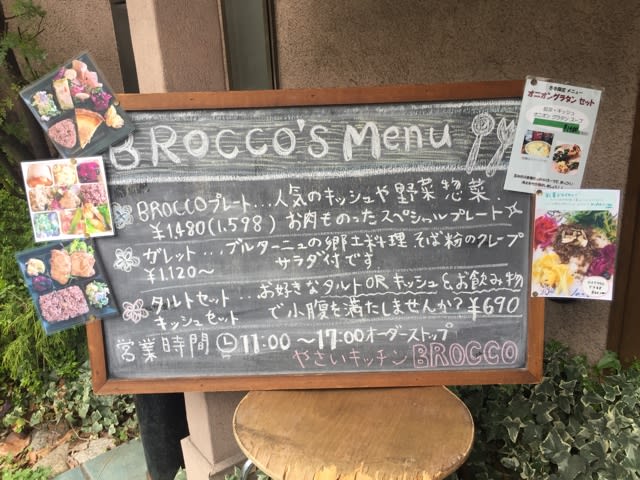 BROCCO'S Menu
BROCCOプレート...人気のキッシュや野菜惣菜.
¥1,480(1,598) お肉ものったスペシャルプレート☆
ガレット...ブルターニュの郷土料理 そば粉のクレープ
¥1,120〜 サラダ付です
タルトセット お好きなタルトORキッシュ&お飲み物
キッシュセット で小腹を満たしませんか?¥690
営業時間 11:00〜17:00オーダーストップ
やさいキッチン BROCCO
オニオングラタン セット